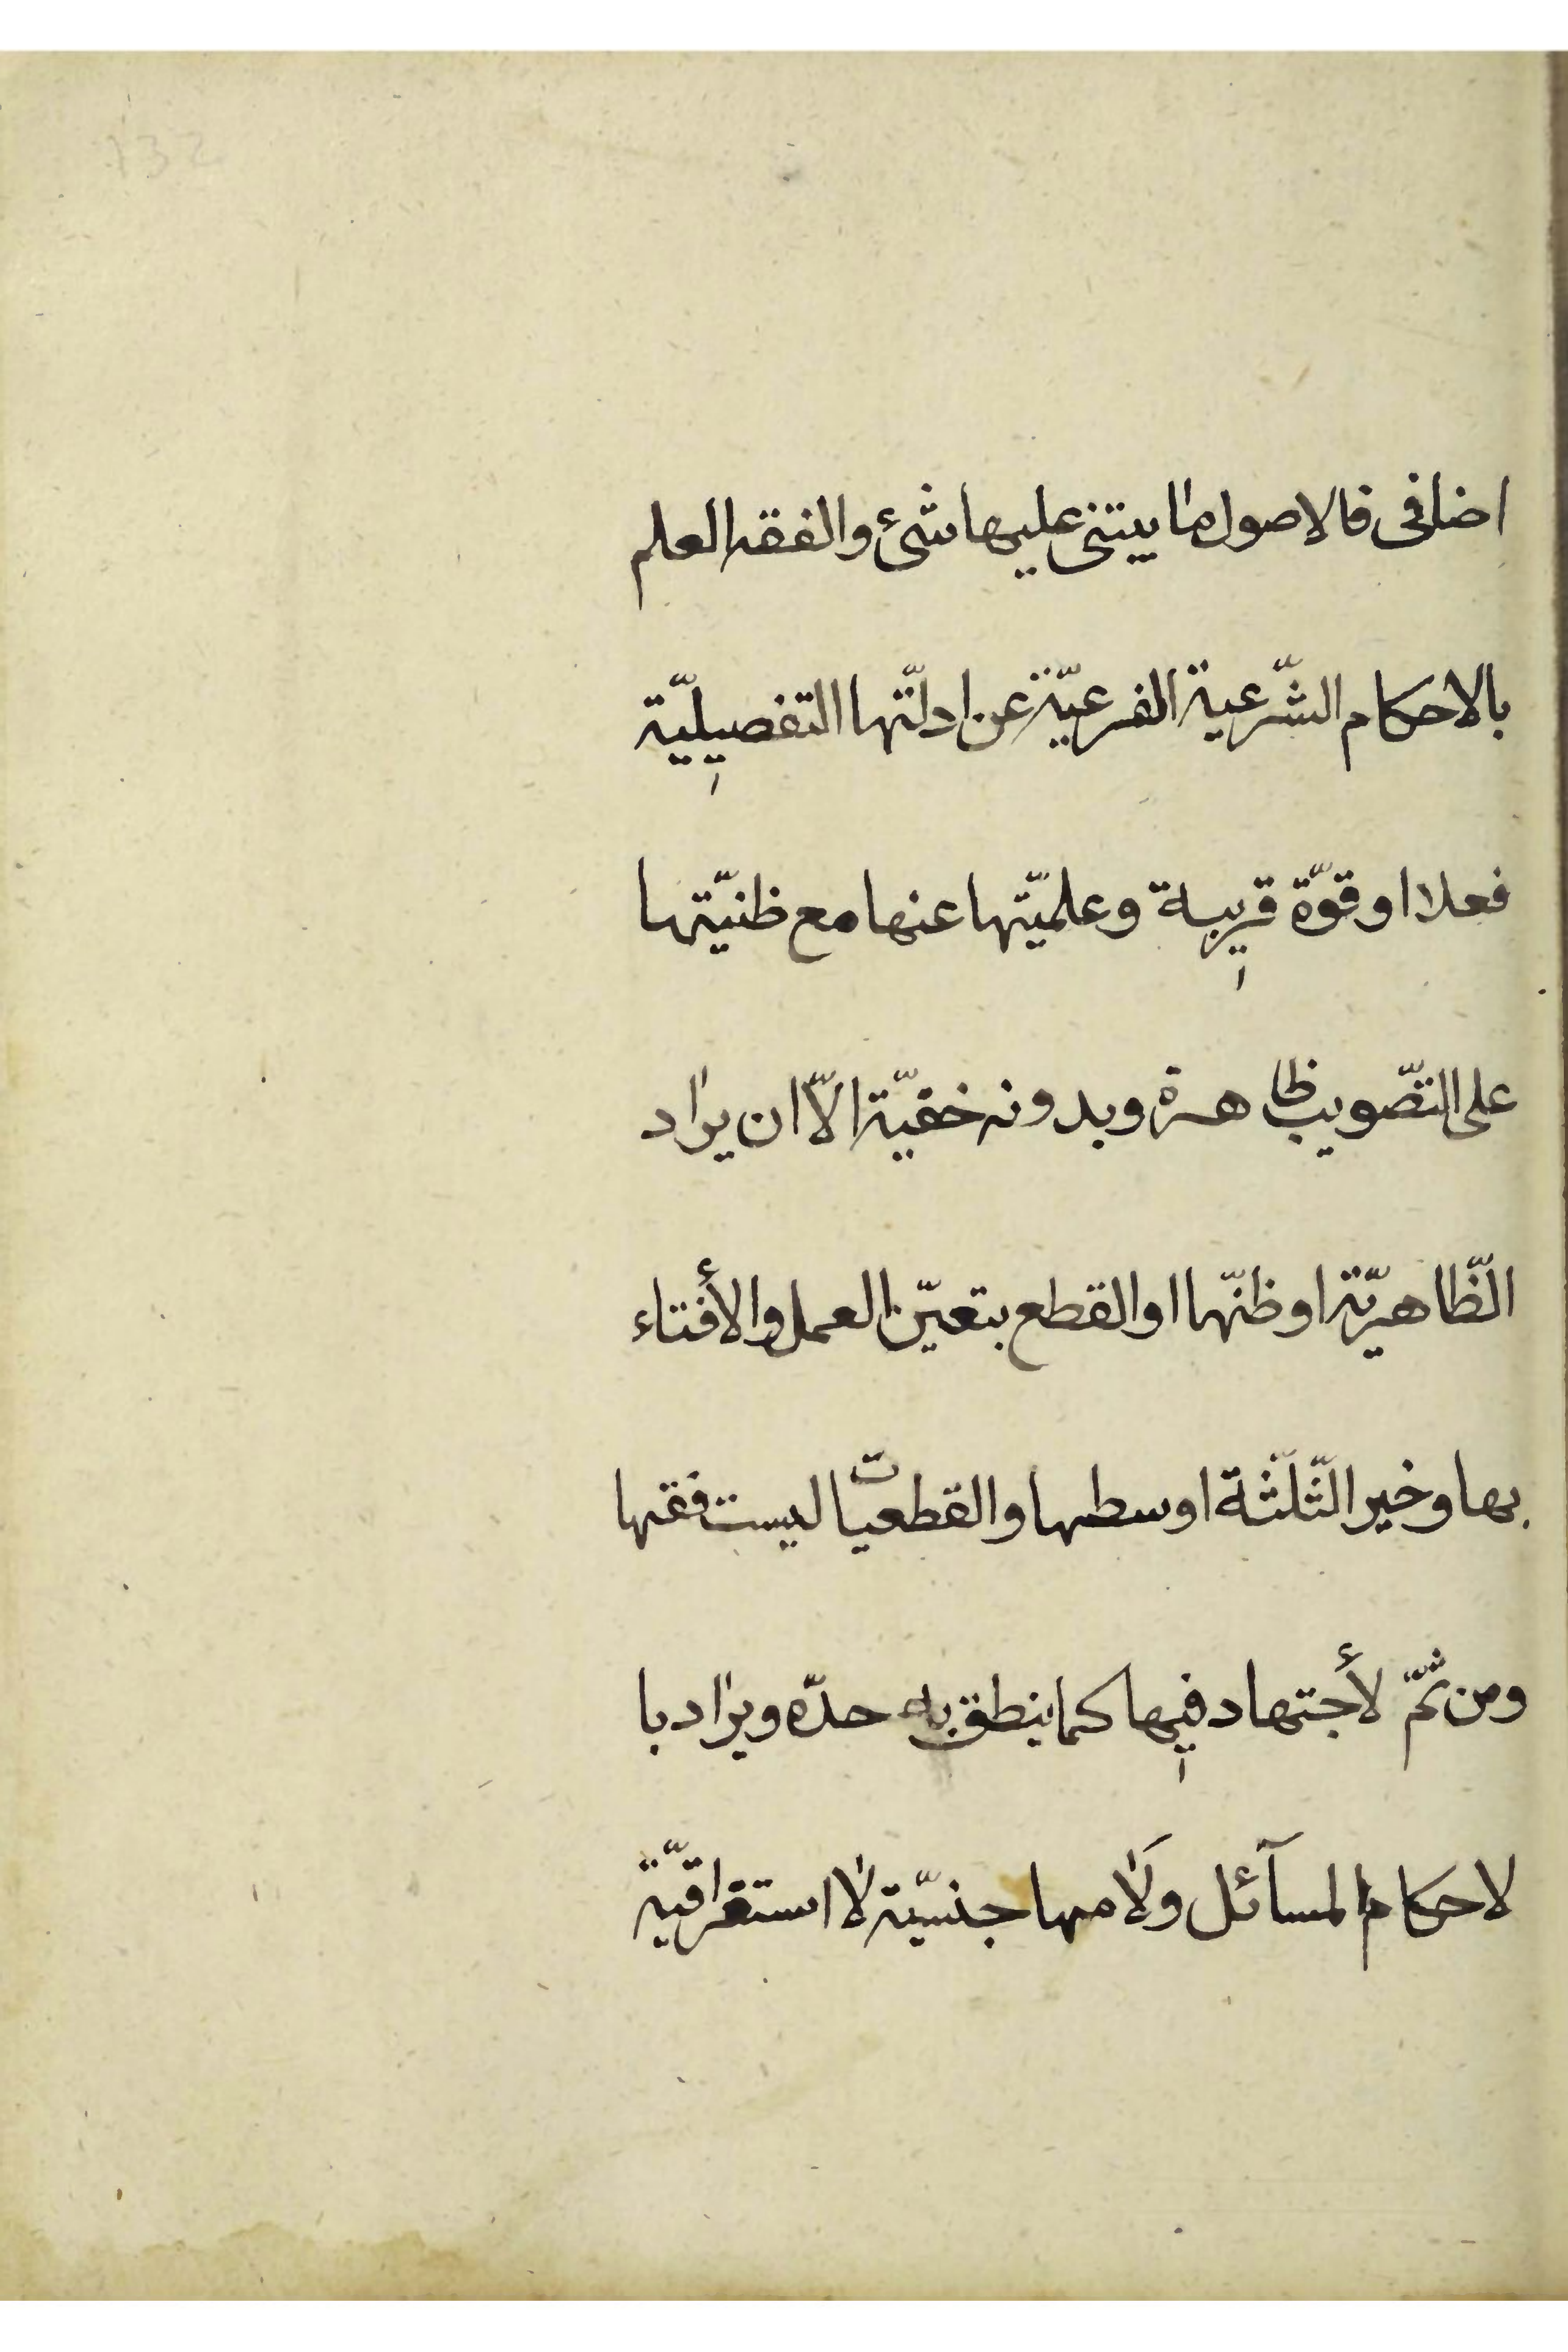 132
اضافى فالاصول ما يبتنى عليها شئ والفقه العلم
بالاحكام الشّرعية الفرعيّة عن ادلّتها التفصيليّة
فعلا او قوّة قريبة وعلميّتها عنها مع ظنيّتها
على التصّويب ظاهرة وبدونه خفيّة الاّ ان يراد
الظّاهريّة او ظنّها او القطع بتعيّن العمل والأفتاء
بها وخير الثّلثة اوسطها والقطعيات ليست فقها
ومن ثمّ لأجتهاد فيها كما ينطق به حدّه ويراد با
لاحكام المسآئل ولامها جنسيّة لا استغراقيّة